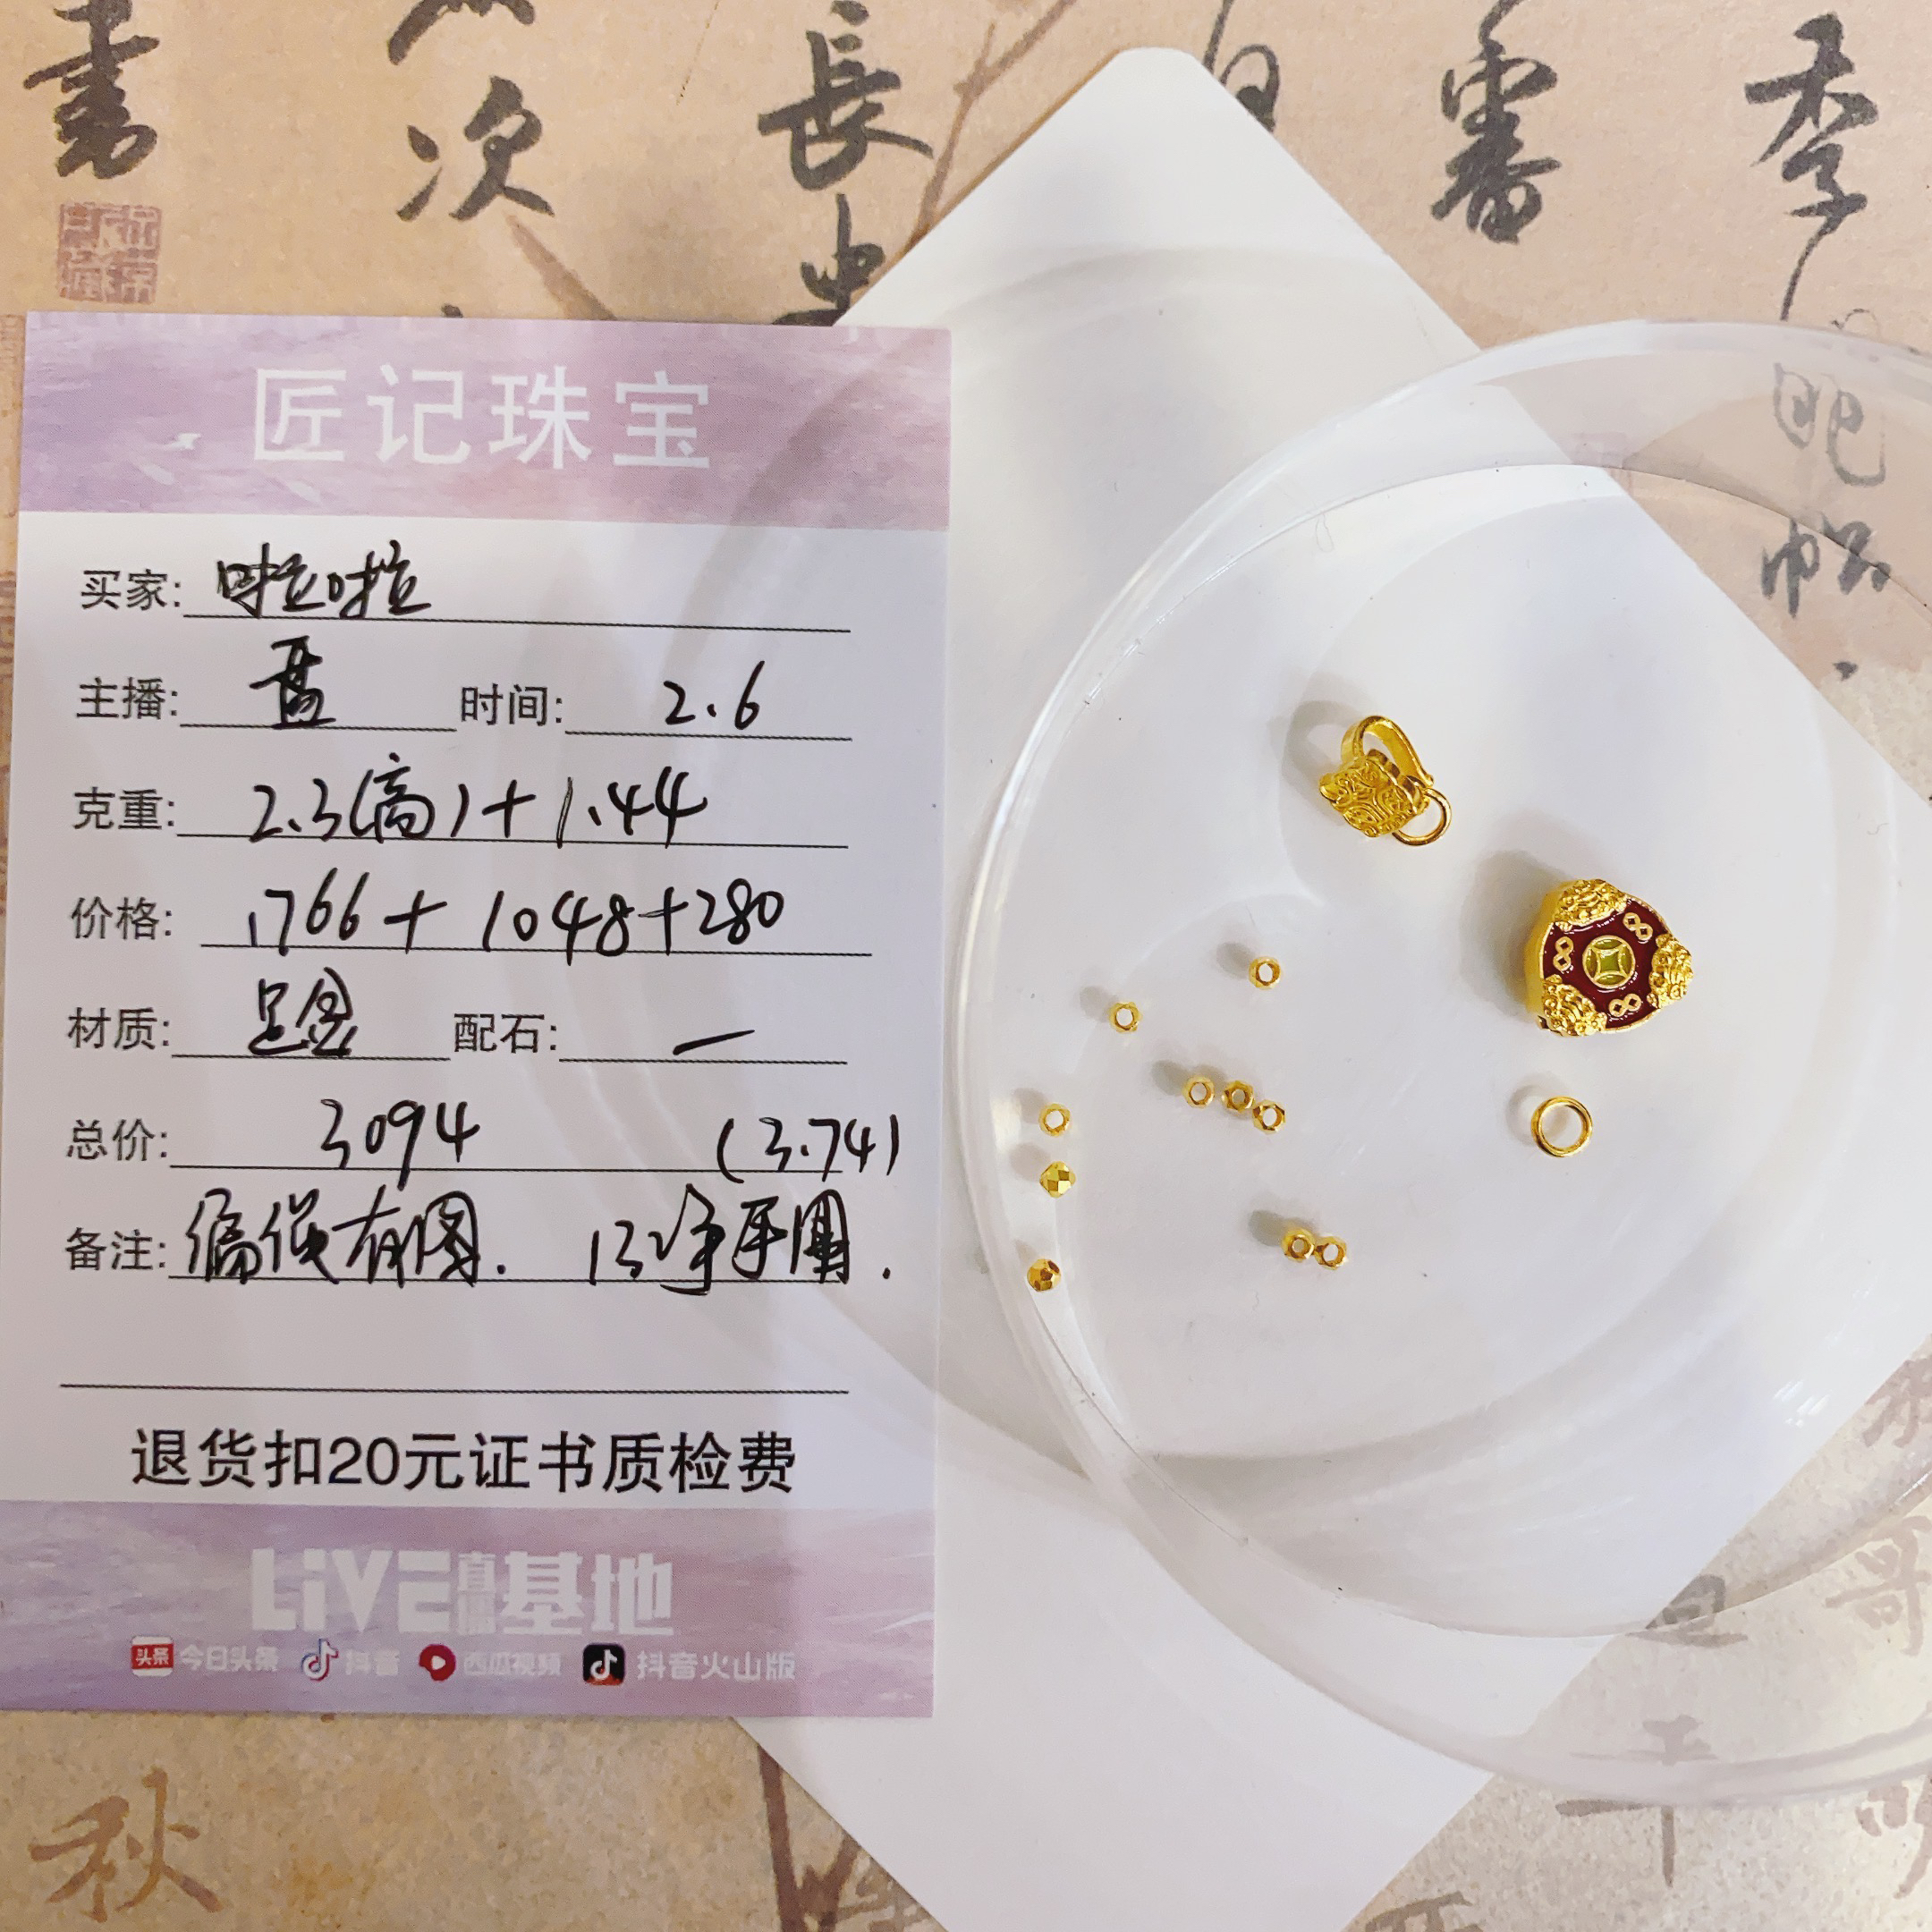 書
次
長
審
季
昵
帖
匠记珠宝
买家: 啦啦
主播: 时间: 2.6
克重: 2.3(高)+1.44
价格: 1766+1048+280
材质: 足金 配石: 一
总价: 3094 (3.74)
备注: 编绳有图. 13净手围.
退货扣20元证书质检费
LiVE直播基地
头条 今日头条 抖音 西瓜视频 抖音火山版
哥
秋